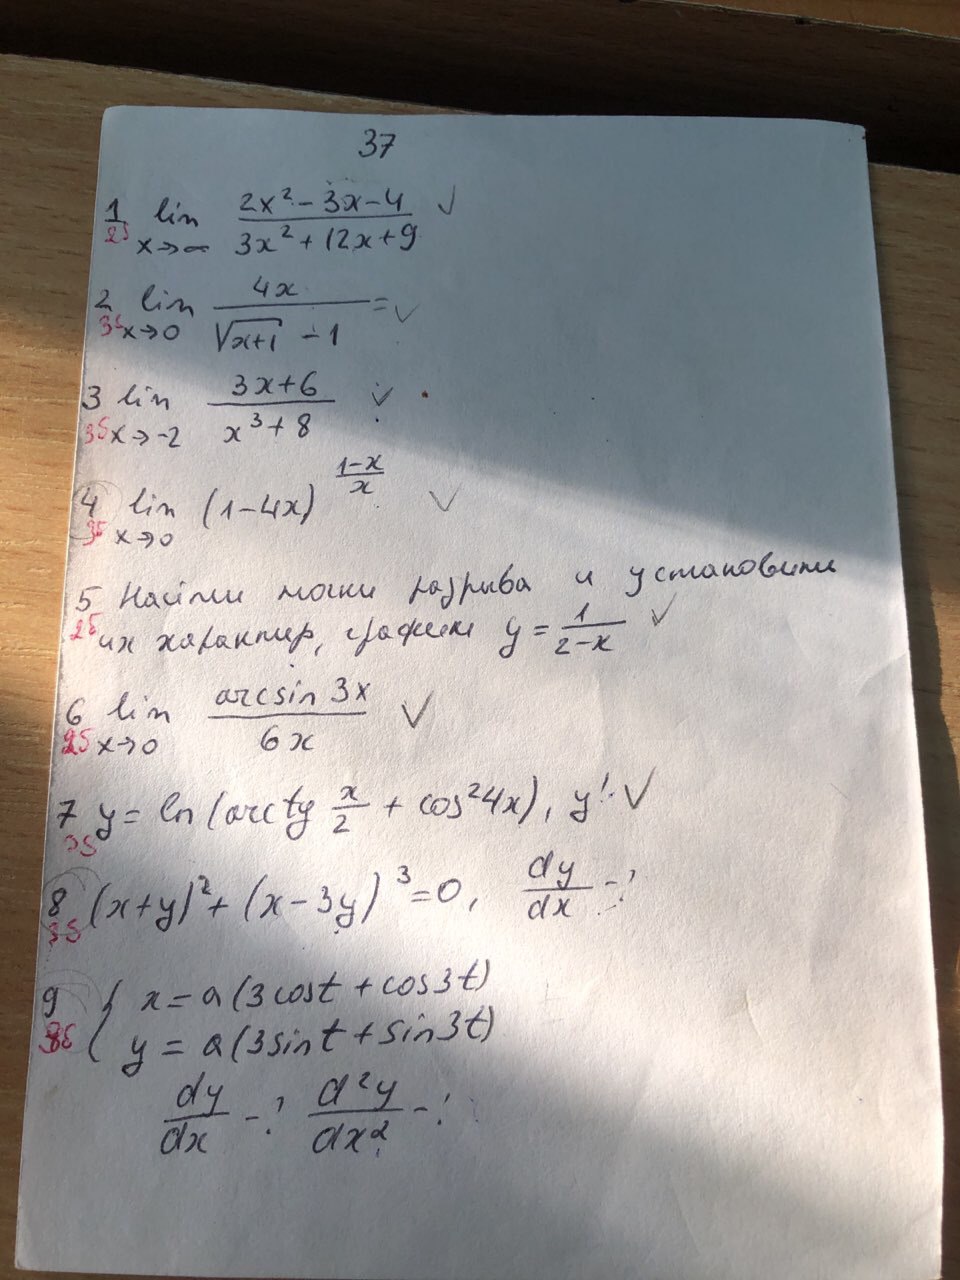 37
1 lim x→∞ (2x² - 3x - 4)/(3x² + 12x + 9) ✓
2б
2 lim x→0 4x/(√(x+1) - 1) = ✓
3б
3 lim x→-2 (3x+6)/(x³+8) ✓
3б
4 lim x→0 (1-4x)^((1-x)/x) ✓
3б
5 Найти точки разрыва и установить
2б их характер, график y = 1/(2-x) ✓
6 lim x→0 (arcsin 3x)/(6x) ✓
2б
7 y = ln(arctg x/2 + cos²4x), y' ✓
8 (x+y)² + (x-3y)³ = 0, dy/dx - ?
3б
9 { x = a(3cost + cos3t)
y = a(3sint + sin3t)
dy/dx - ? d²y/dx² - ?